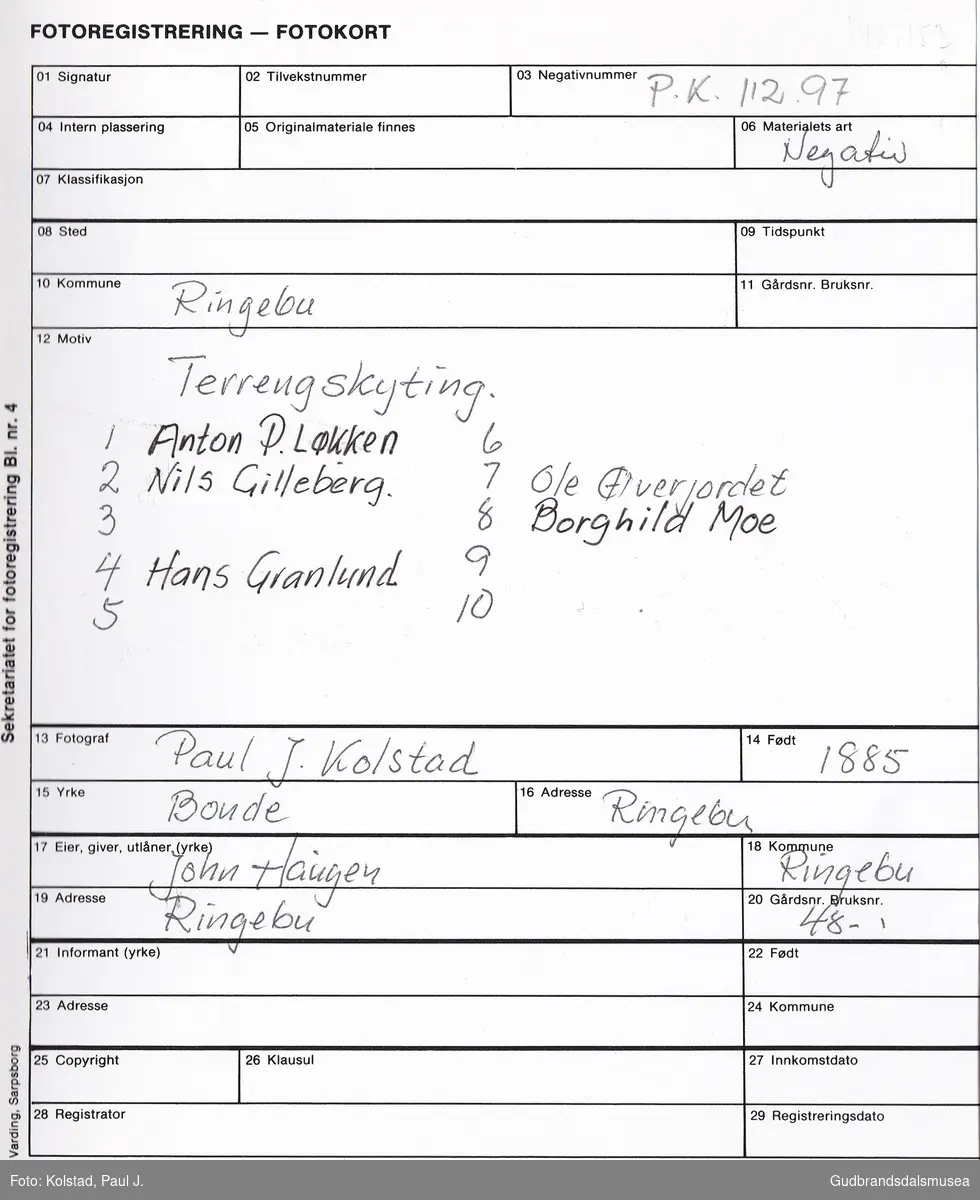 FOTOREGISTRERING — FOTOKORT
01 Signatur
02 Tilvekstnummer
03 Negativnummer P.K. 112.97
04 Intern plassering
05 Originalmateriale finnes
06 Materialets art Negativ
07 Klassifikasjon
08 Sted
09 Tidspunkt
10 Kommune Ringebu
11 Gårdsnr. Bruksnr.
12 Motiv
Terrengskyting.
1 Anton P. Løkken 6
2 Nils Gilleberg. 7 Ole Øverjordet
3 8 Borghild Moe
4 Hans Granlund 9
5 10
13 Fotograf Paul J. Kolstad
14 Født 1885
15 Yrke Bonde
16 Adresse Ringebu
17 Eier, giver, utlåner (yrke) John Haugen
18 Kommune Ringebu
19 Adresse Ringebu
20 Gårdsnr. Bruksnr. 48- 1
21 Informant (yrke)
22 Født
23 Adresse
24 Kommune
25 Copyright
26 Klausul
27 Innkomstdato
28 Registrator
29 Registreringsdato
Sekretariatet for fotoregistrering Bl. nr. 4
Varding, Sarpsborg
Foto: Kolstad, Paul J.
Gudbrandsdalsmusea